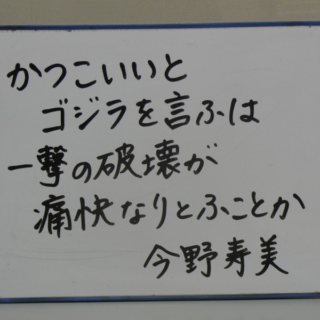 かつこいいと
ゴジラを言ふは
一撃の破壊が
痛快なりとふことか
今野寿美